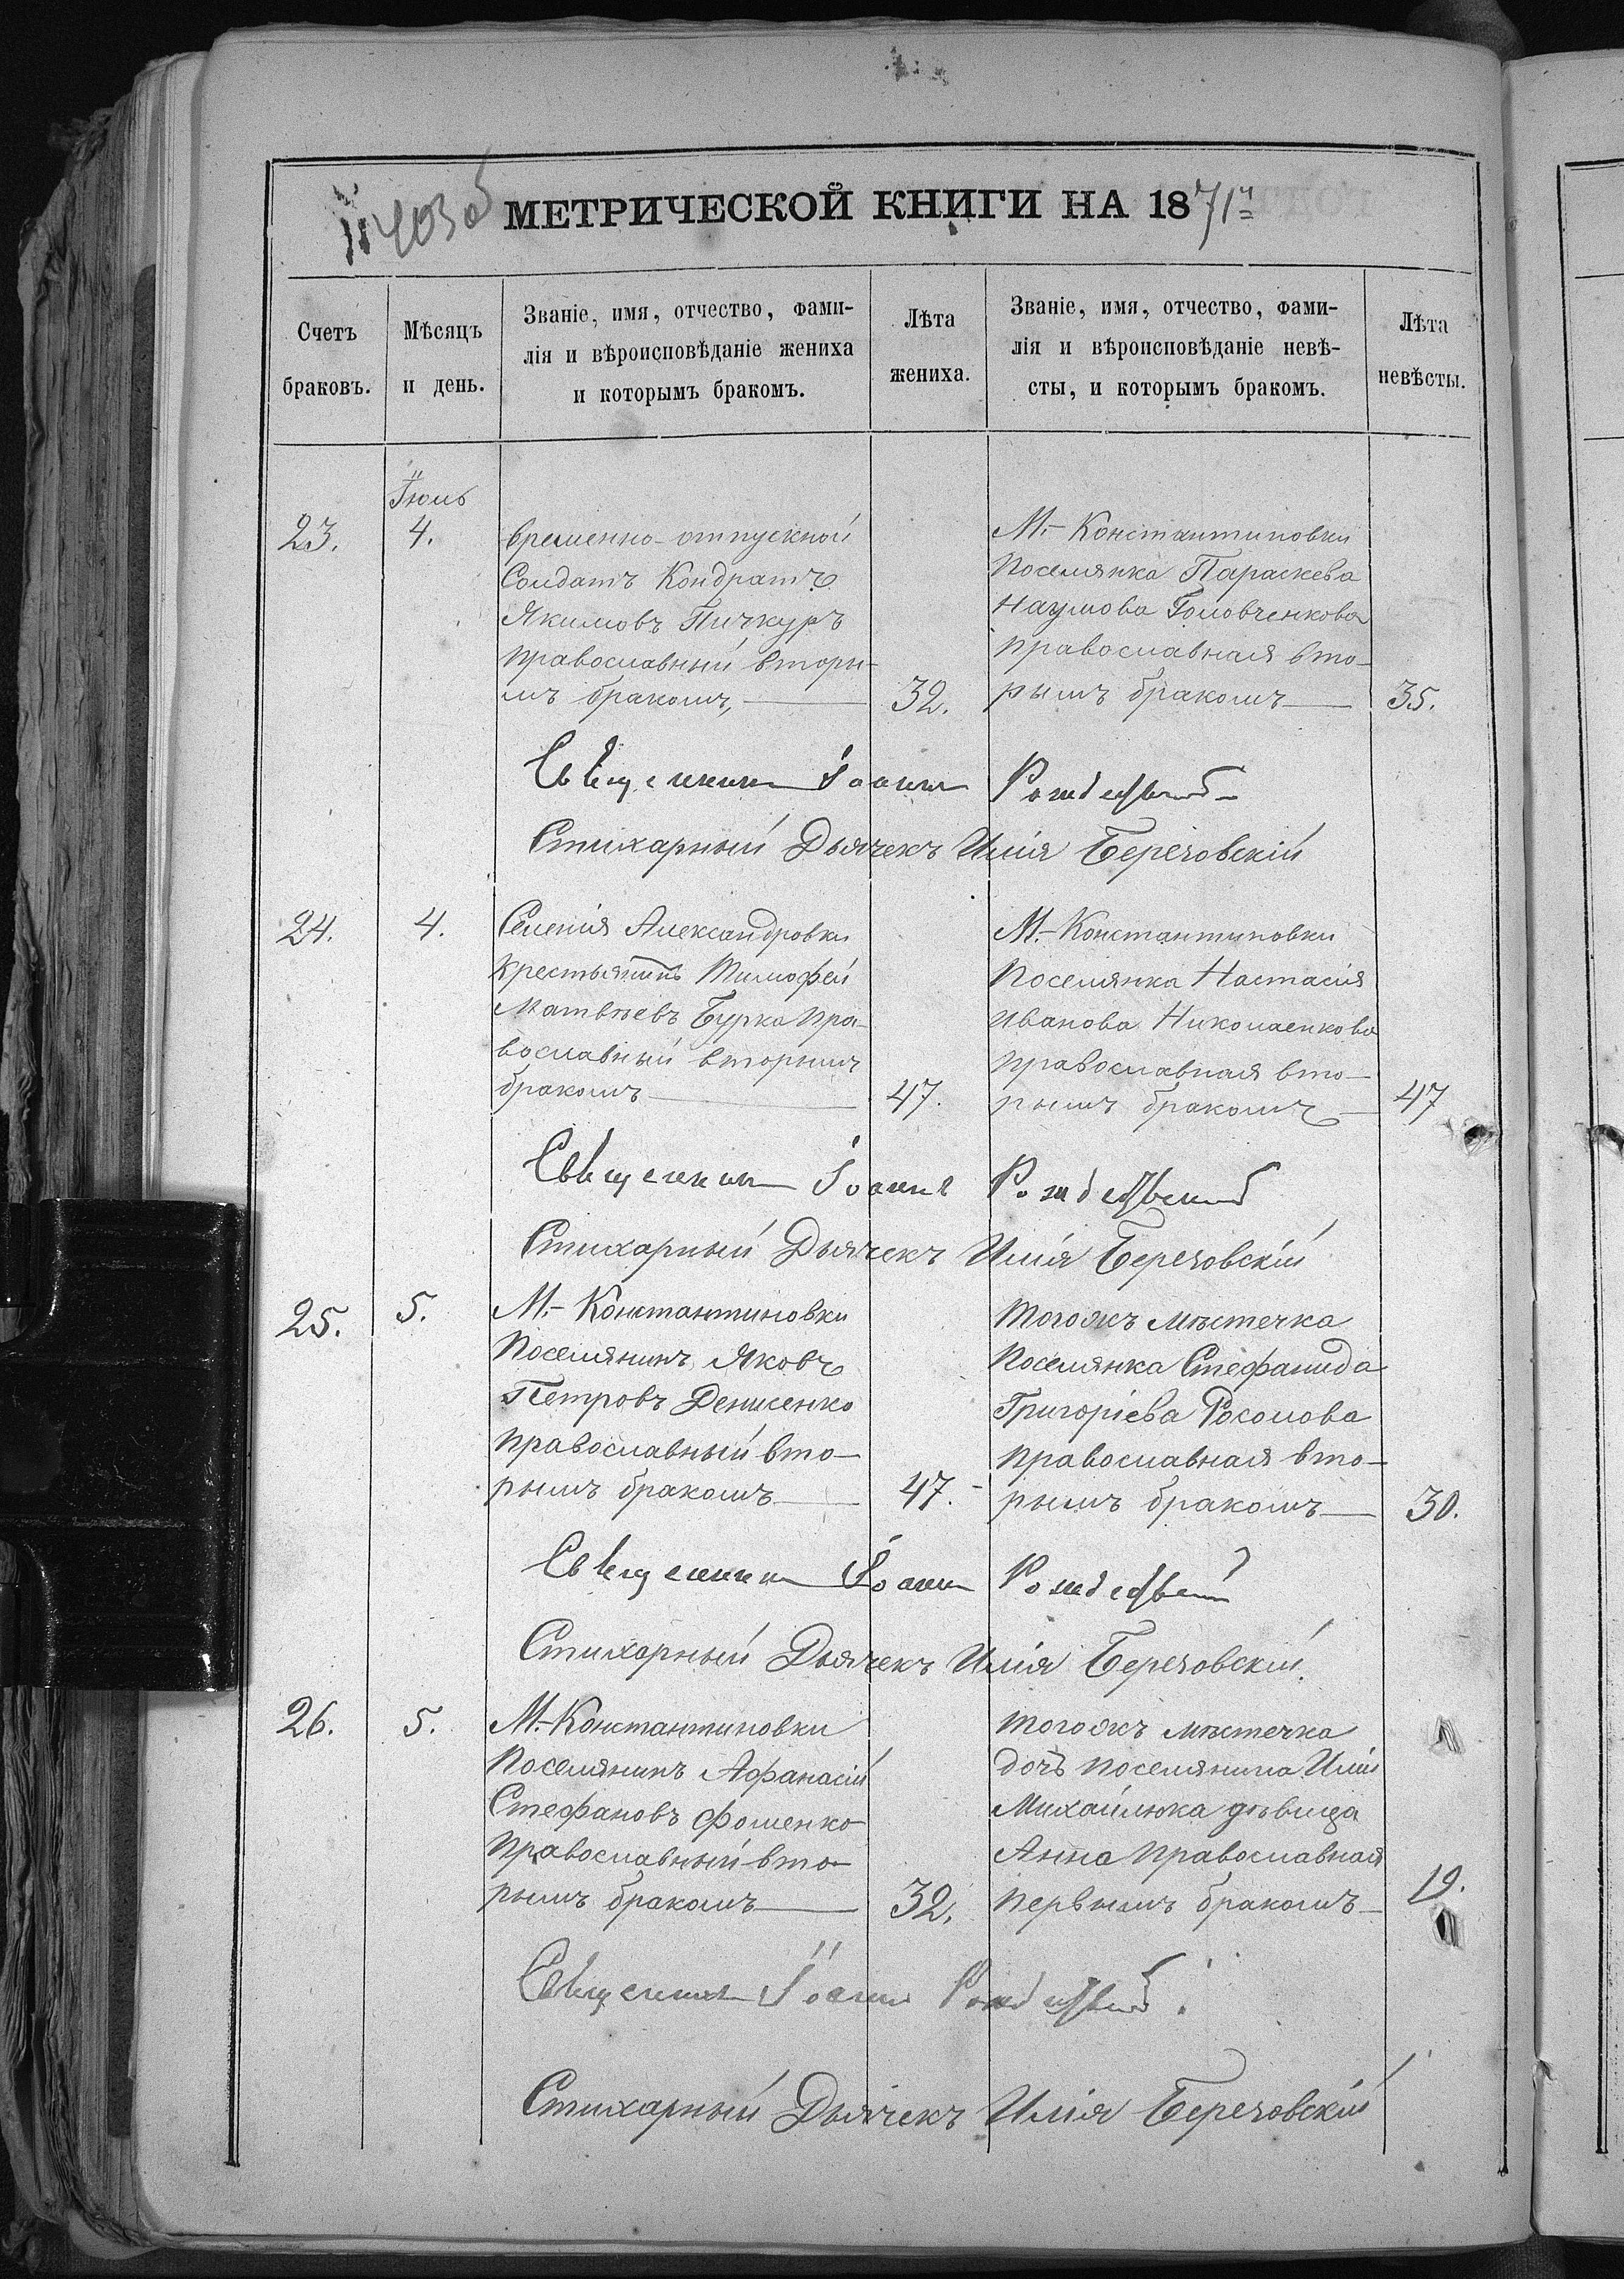 403 об
МЕТРИЧЕСКОЙ КНИГИ НА 1871й
Счетъ
браковъ.
Мѣсяцъ
и день.
Званіе, имя, отчество, фами-
лія и вѣроисповѣданіе жениха
и которымъ бракомъ.
Лѣта
жениха.
Званіе, имя, отчество, фами-
лія и вѣроисповѣданіе невѣ-
сты, и которымъ бракомъ.
Лѣта
невѣсты.
23.
Іюль
4.
временно-отпускной
Солдатъ Кондратъ
Якимовъ Пичкуръ
православный вторы-
мъ бракомъ,
32.
М.- Константиновки
Поселянка Параскева
Наумова Головченкова
православная вто-
рымъ бракомъ
35.
Священникъ Іоаннъ Рождественскій
Стихарный Дьячекъ Илія Березовскій
24.
4.
Селенія Александровки
крестьянинъ Тимофей
Матвѣевъ Бурка пра-
вославный вторымъ
бракомъ
47.
М.- Константиновки
Поселянка Настасія
Иванова Николаенкова
православная вто-
рымъ бракомъ
47
Священникъ Іоаннъ Рождественскій
Стихарный Дьячекъ Илія Березовскій
25.
5.
М.- Константиновки
Поселянинъ Яковъ
Петровъ Денисенко
православный вто-
рымъ бракомъ
47.
тогожъ мѣстечка
Поселянка Стефанида
Григоріева Росолова
православная вто-
рымъ бракомъ
30.
Священникъ Іоаннъ Рождественскій
Стихарный Дьячекъ Илія Березовскій.
26.
5.
М.- Константиновки
Поселянинъ Афанасій
Стефановъ Фоменко
Православный вто-
рымъ бракомъ
32.
тогожъ мѣстечка
дочь поселянина Иліи
Михайлюка дѣвица
Анна православная
первымъ бракомъ
19.
Священникъ Іоаннъ Рождественскій.
Стихарный Дьячекъ Илія Березовскій